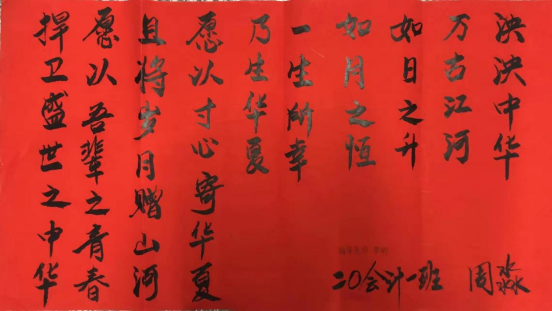 泱泱中华
万古江河
如日之升
如月之恒
一生所幸
乃生华夏
愿以寸心寄华夏
且将岁月赠山河
愿以吾辈之青春
捍卫盛世之中华
二0会计一班 周淼